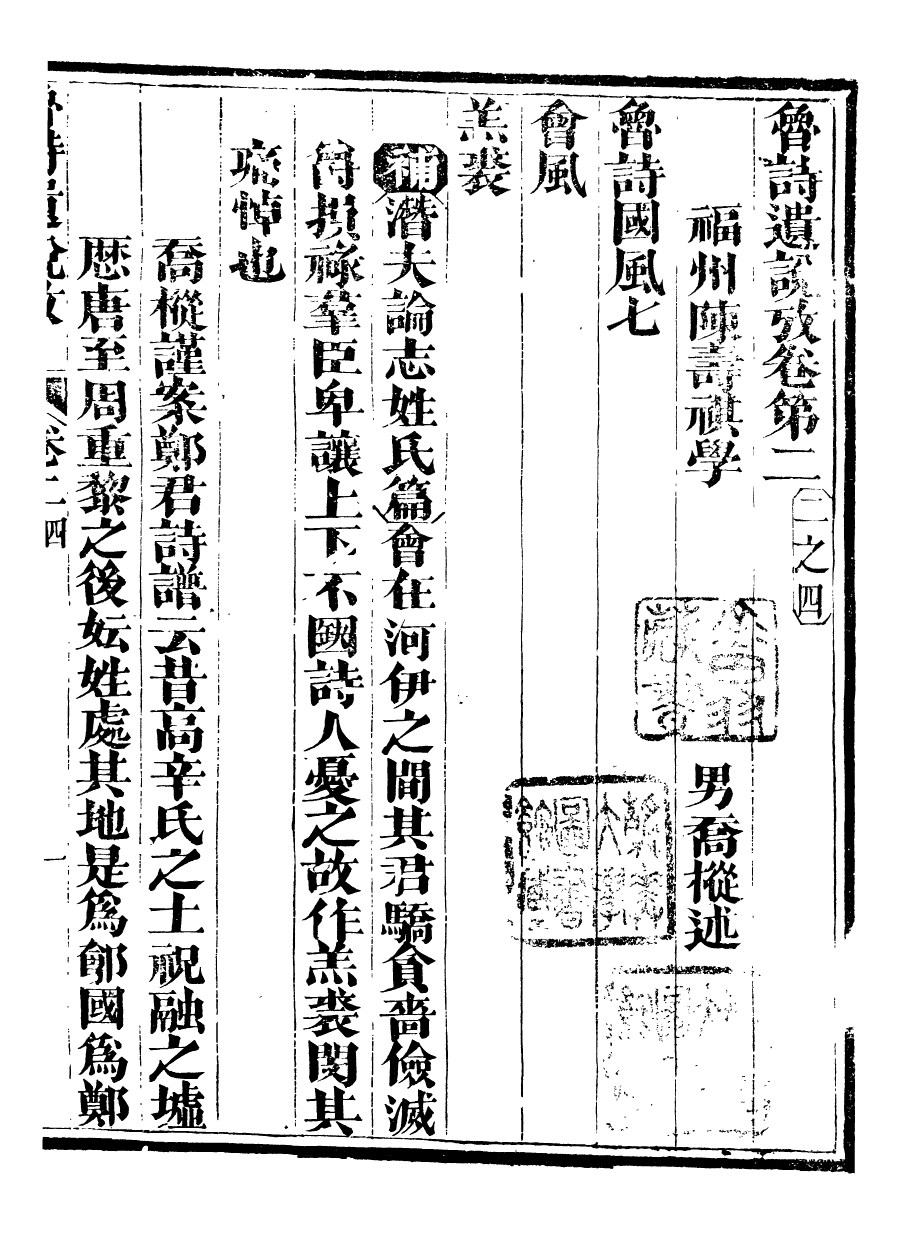 魯詩遺說攷卷第二 二之四
福州陳壽祺學 男喬樅述
魯詩國風七
會風
羔裘
補潛夫論志姓氏篇會在河伊之間其君驕貪嗇儉滅
爵損祿羣臣卑讓上下不臨詩人憂之故作羔裘閔其
痛悼也
喬樅謹案鄭君詩譜云昔高辛氏之土祝融之墟
歷唐至周重黎之後妘姓處其地是爲鄶國爲鄭
魯詩遺說攷 卷二四 一